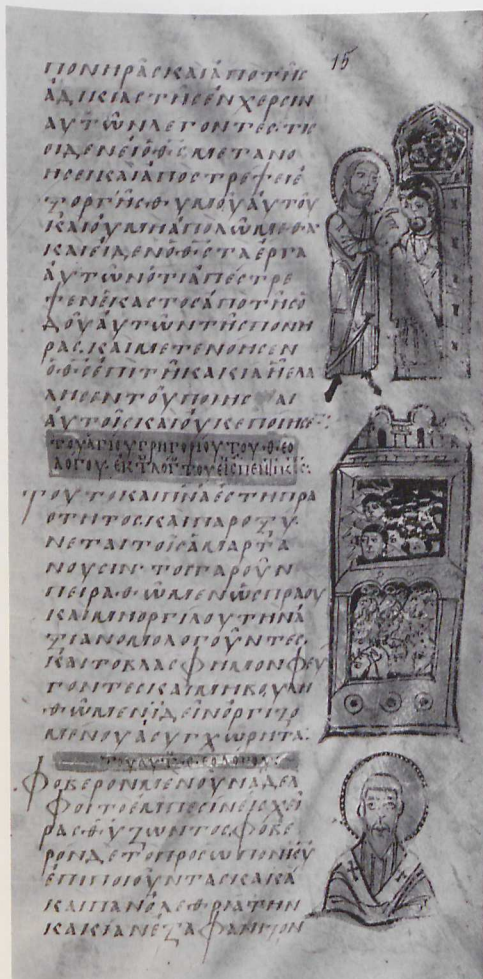 15
ΠΟΝΗΡΑΣ ΚΑΙ ΑΠΟ ΤΗΣ
ΑΔΙΚΙΑΣ ΤΗΣ ΕΝ ΧΕΡΣΙΝ
ΑΥΤΩΝ ΛΕΓΟΝΤΕΣ ΤΙΣ
ΟΙΔΕΝ ΕΙ Ο ΘΣ ΜΕΤΑΝΟ
ΗΣΕΙ ΚΑΙ ΑΠΟΣΤΡΕΨΕΙ Ε
ΞΟΡΓΗΣ ΘΥΜΟΥ ΑΥΤΟΥ
ΚΑΙ ΟΥ ΜΗ ΑΠΟΛΩΜΕΘΑ
ΚΑΙ ΕΙΔΕΝ Ο ΘΣ ΤΑ ΕΡΓΑ
ΑΥΤΩΝ ΟΤΙ ΑΠΕΣΤΡΕ
ΨΕΝ ΕΚΑΣΤΟΣ ΑΠΟ ΤΗΣ Ο
ΔΟΥ ΑΥΤΩΝ ΤΗΣ ΠΟΝΗ
ΡΑΣ. ΚΑΙ ΜΕΤΕΝΟΗΣΕΝ
Ο ΘΣ ΕΠΙ ΤΗ ΚΑΚΙΑ Η ΕΛΑ
ΛΗΣΕΝ ΤΟΥ ΠΟΙΗΣΑΙ
ΑΥΤΟΙΣ ΚΑΙ ΟΥΚ ΕΠΟΙΗΣΕ
ΤΟΥ ΑΓΙΟΥ ΓΡΗΓΟΡΙΟΥ ΤΟΥ ΘΕΟ
ΛΟΓΟΥ
ΤΟΥΤΟ ΚΑΠΙ
ΟΤΗΤΟΣ ΚΑΙ ΠΑΡΟΞΥ
ΝΕΤΑΙ ΤΟΙΣ ΑΜΑΡΤΑ
ΝΟΥΣΙΝ
ΠΕΙΡΑΘΩΜΕΝ ΩΣ ΠΡΑΟΥ
ΚΑΙ ΜΗ ΟΡΓΙΛΟΥ ΤΗΝ Α
ΞΙΑΝ ΟΜΟΛΟΓΟΥΝΤΕΣ.
ΚΑΙ ΤΟ ΒΛΑΣΦΗΜΟΝ ΦΕΥ
ΓΟΝΤΕΣ ΚΑΙ ΜΗ ΒΟΥΛΗ
ΘΩΜΕΝ ΙΔΕΙΝ ΟΡΓΙΖΟ
ΜΕΝΟΥ ΑΣΥΓΧΩΡΗΤΑ:
ΦΟΒΕΡΟΝ ΜΕΝ ΟΥΝ ΑΔΕΛ
ΦΟΙ ΤΟ ΕΜΠΕΣΙΝ ΕΙΣ ΧΕΙ
ΡΑΣ ΘΥ ΖΩΝΤΟΣ ΦΟΒΕ
ΡΟΝ ΔΕ ΤΟ ΠΡΟΣΩΠΟΝ ΚΥ
ΕΠΙ ΠΟΙΟΥΝΤΑΣ ΚΑΚΑ
ΚΑΙ ΠΑΝΟΛΕΘΡΙΑ ΤΗΝ
ΚΑΚΙΑΝ ΕΞΑΦΑΝΙΖΟΝ